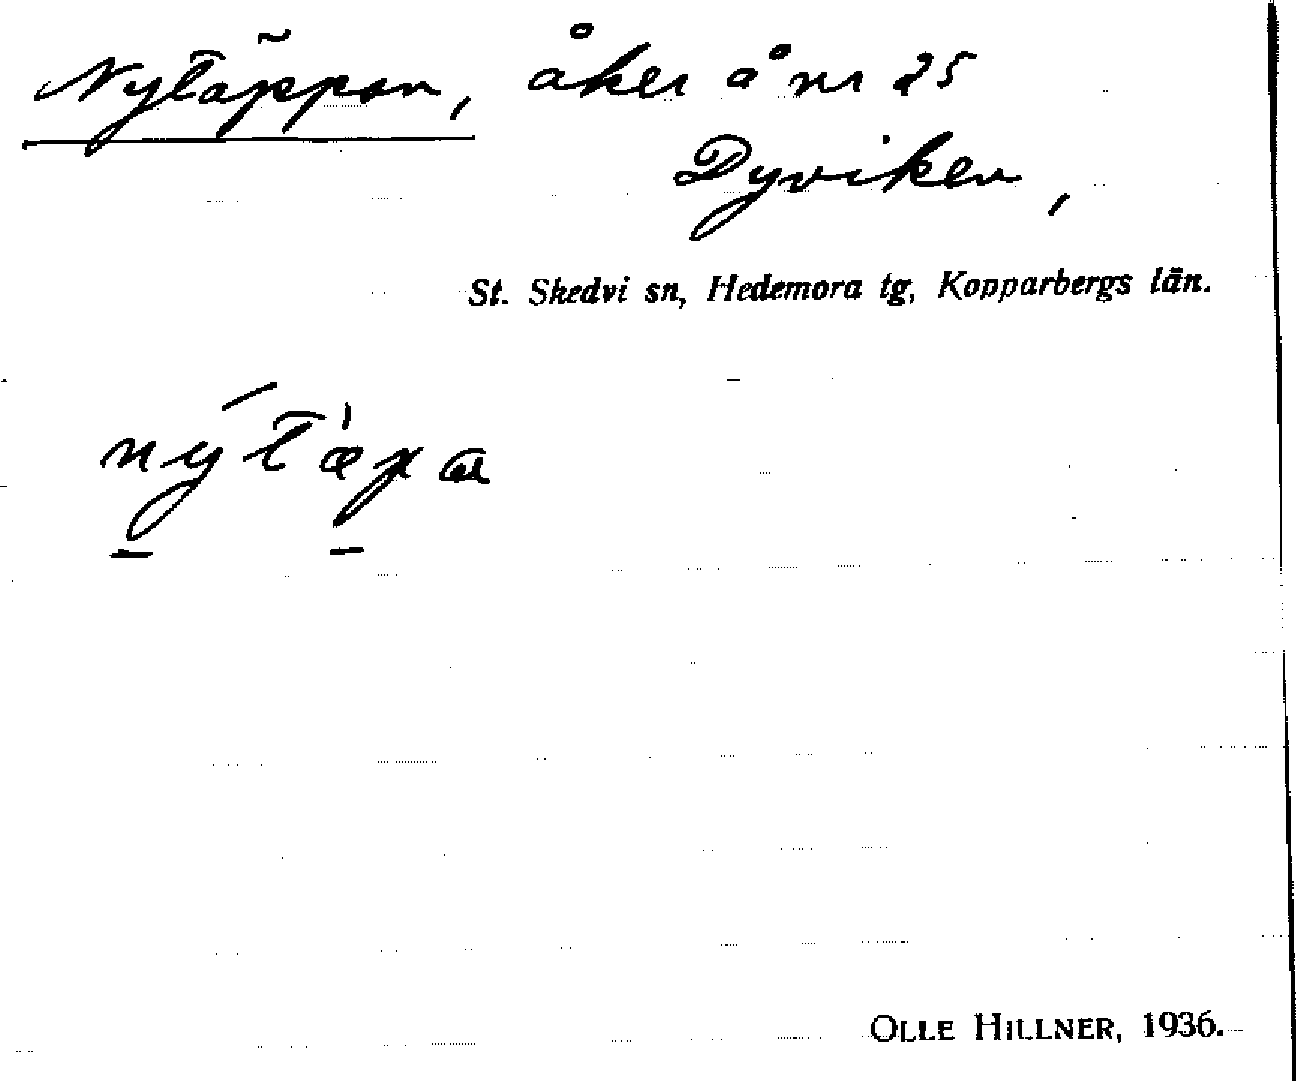 Nytäppan, åker å nr 25
Dyviken,
St. Skedvi sn, Hedemora tg, Kopparbergs län.
OLLE HILLNER, 1936.